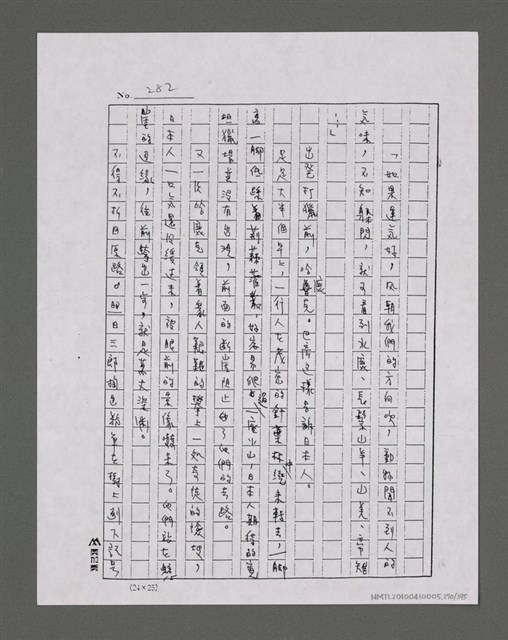 No. 282
「如果運氣好，風朝我們的方向吹，動物聞不到人的
氣味，不知躲閃，就可看到水鹿、長鬃山羊、山羌、帝雉
…」
出發打獵前，哈鹿克。巴彥這樣告訴日本人。
足足大半個午上，一行人在茂密的針葉林中繞來轉去，一腳
高一腳低踩著荊棘蔓叢，好容易爬過一座火山，日本人期待的
獵場並沒有出現，前面的斷崖阻止了他們的去路。
又一次哈鹿克領著眾人艱難的攀上一處奇陡的坡，
日本人一口氣還沒緩過來，被眼前的景像嚇呆了。他們站在懸
崖的邊緣，往前一步，就是萬丈深淵。
不得不折回原路。田三郎掏出鉛筆在樹上劃下記號
(24×25)
NMTL20100410005,290/395